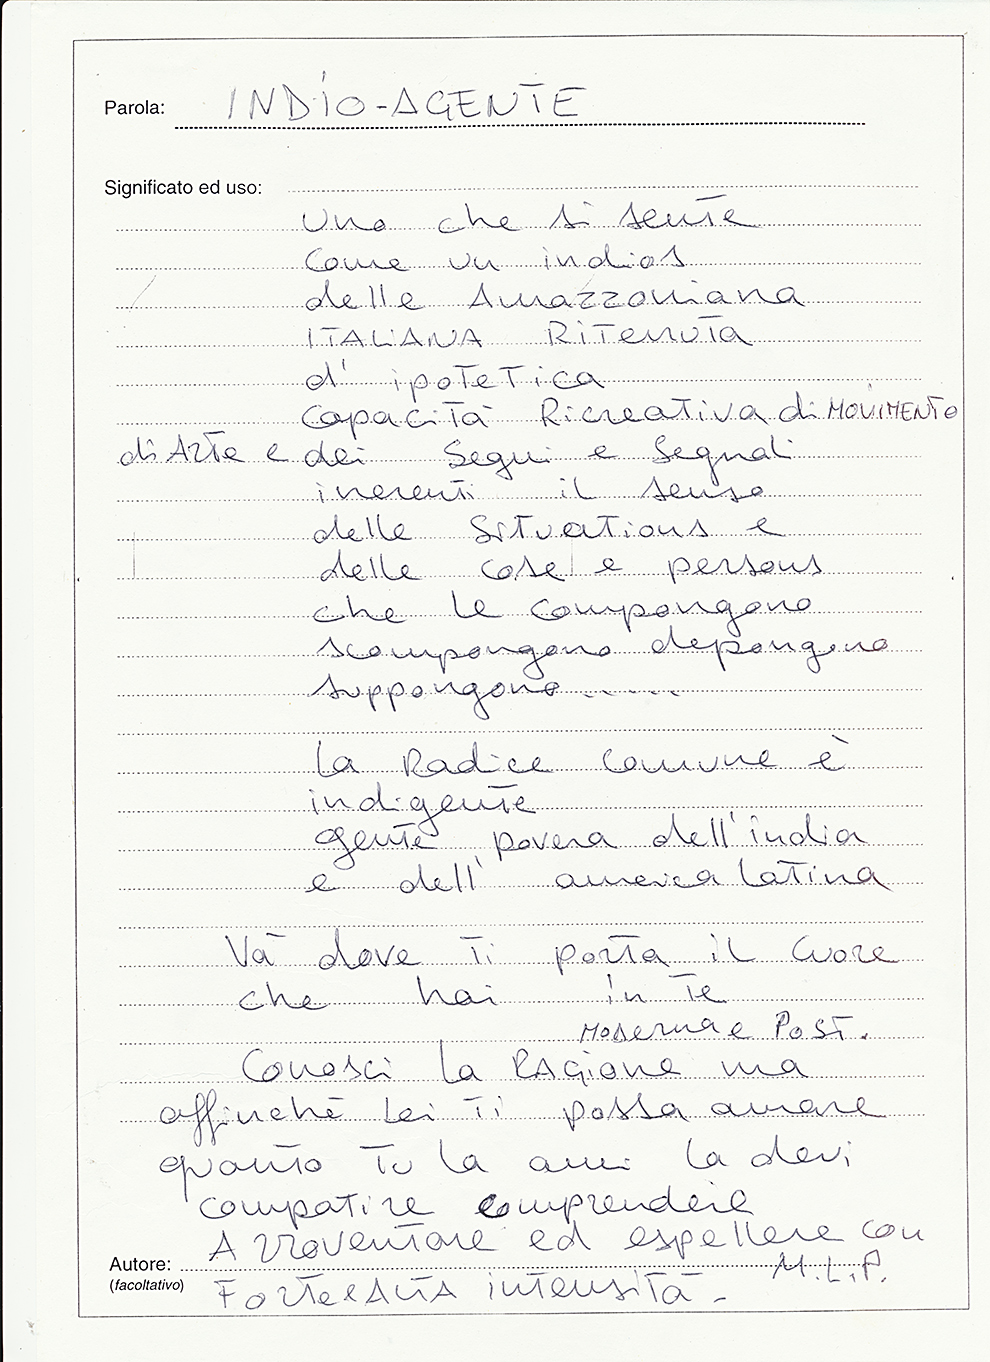 Parola: INDIO-AGENTE
Significato ed uso:
Uno che si sente
Come un indios
delle Amazzoniana
ITALIANA RiTenuTa
d' ipoTeTica
capaciTà RicreaTiva di MOVIMENTO
di Arte e dei Segni e Segnali
inerenti il senso
delle SiTuaTions e
delle cose e persons
che le compongono
scompongono depongono
suppongono ......
La Radice comune è
indigente
gente povera dell'india
e dell' america laTina
Và dove Ti porta il Cuore
che hai in Te
Moderna e PosT.
Conosci la RAgione ma
affinchè Lei Ti possa amare
quanto Tu la ami la devi
compatire comprendere
Arroventare ed espellere con
Autore:
(facoltativo)
M.L.P.
Forte e AlTA intensiTà -